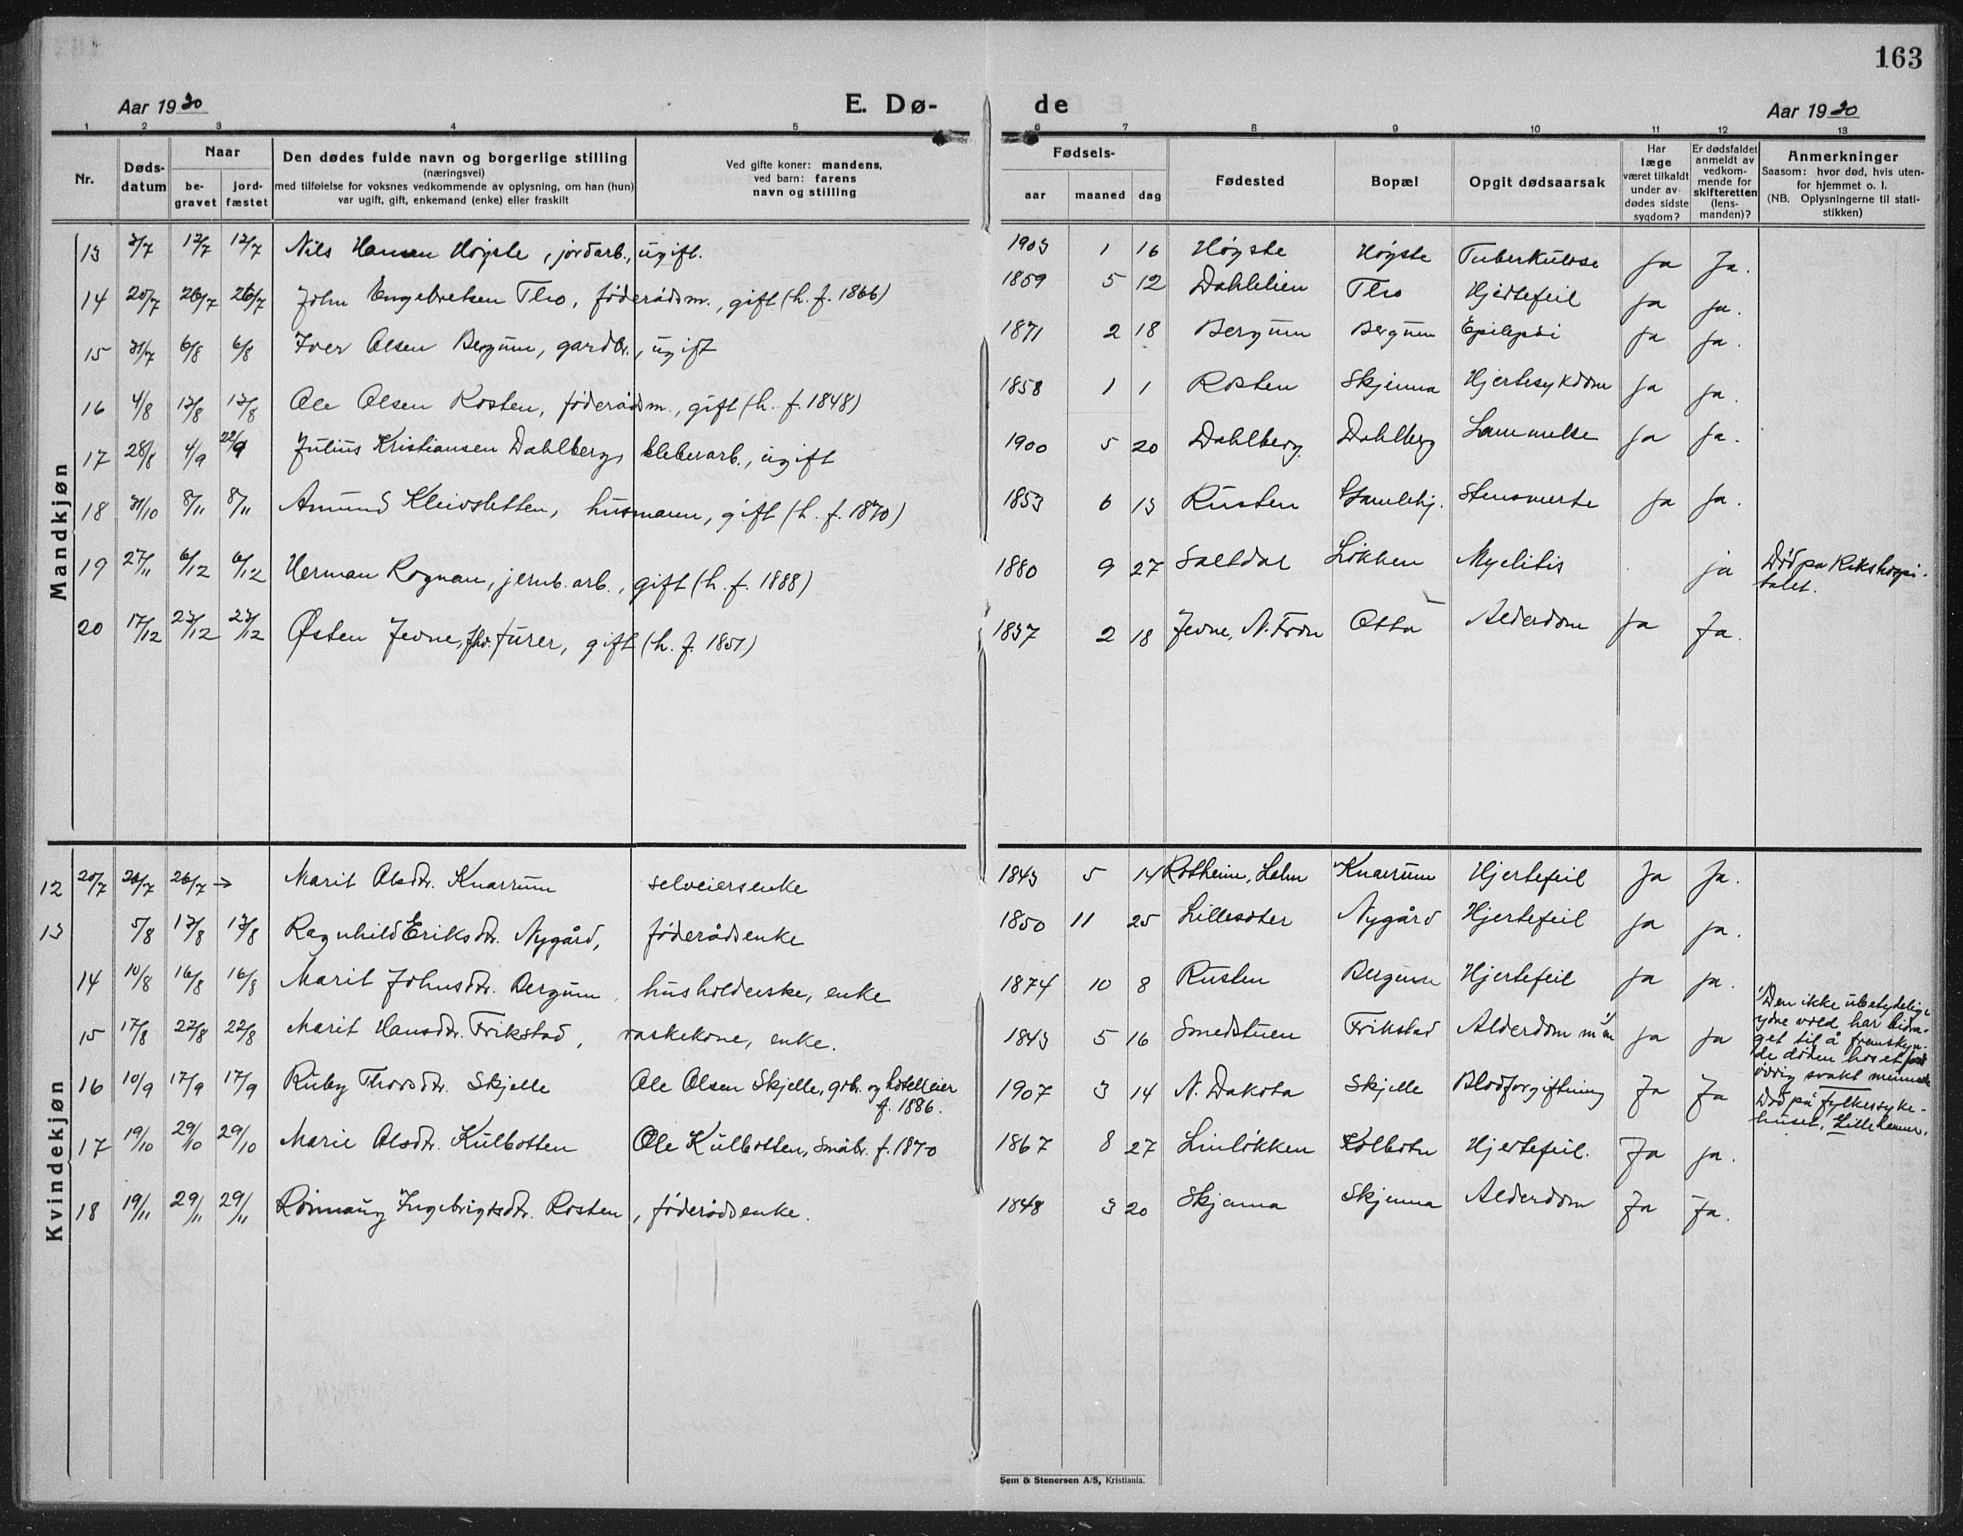 163
Aar 1930 E. Dø- de Aar 1930
1 2 3 4 5 6 7 8 9 10 11 12 13
Nr. Døds-datum Naar be-gravet jord-fæstet Den dødes fulde navn og borgerlige stilling (næringsvei) med tilføielse for voksnes vedkommende av oplysning, om han (hun) var ugift, gift, enkemand (enke) eller fraskilt Ved gifte koner: mandens, ved barn: farens navn og stilling Fødsels- aar maaned dag Fødested Bopæl Opgit dødsaarsak Har læge været tilkaldt under av-dødes sidste sygdom? Er dødsfaldet anmeldt av vedkom-mende for skifteretten (lens-manden)? Anmerkninger Saasom: hvor død, hvis uten-for hjemmet o. l. (NB. Oplysningerne til stati-stikken)
Mandkjøn
13 3/7 12/7 12/7 Nils Hansen Høyste, jordarb., ugift. 1903 1 16 Høyste Høyste Tuberkulose Ja Ja.
14 20/7 26/7 26/7 John Engebretsen Tho, føderådsm., gift (h. f. 1866) 1859 5 12 Dahlelien Tho Hjertefeil Ja Ja.
15 31/7 6/8 6/8 Iver Olsen Bergum, gardbr., ugift 1871 2 18 Bergum Bergum Epilepsi Ja Ja.
16 4/8 13/8 13/8 Ole Olsen Rosten, føderådsm., gift (h. f. 1848) 1858 1 1 Rosten Skjenna Hjertesykdom Ja Ja.
17 28/8 4/9 22/9 Julius Kristiansen Dahlberg, kleberarb., ugift 1900 5 20 Dahlberg Dahlberg Lammelse Ja Ja.
18 31/10 8/11 8/11 Amund Kleivsletten, husmann, gift (h. f. 1870) 1853 6 13 Rusten Gamlehj. Stensmerte Ja Ja.
19 27/11 6/12 6/12 Herman Rognan, jernb. arb., gift (h. f. 1888) 1880 9 27 Saltdal Løkken Myelitis ja Død på Rikshospi-
talet.
20 17/12 23/12 23/12 Østen Jevne, fhv. furer, gift (h. f. 1851) 1837 2 18 Jevne, N. Fron Otta Alderdom Ja Ja.
Kvindekjøn
12 20/7 26/7 26/7 → Marit Olsdtr. Knarrum selveiersenke 1843 5 14 Rotheim, Lalm Knarrum Hjertefeil Ja Ja.
13 5/8 13/8 13/8 Ragnhild Eriksdtr. Nygård, føderådsenke 1850 11 25 Lillesæter Nygård Hjertefeil Ja Ja.
14 10/8 16/8 16/8 Marit Johnsdtr. Bergum husholderske, enke 1874 10 8 Rusten Bergum Hjertefeil Ja Ja.
15 17/8 22/8 22/8 Marit Hansdtr. Frikstad, vaskekone, enke. 1843 5 16 Smedstuen Frikstad Alderdom m m 1) Ja Ja 1) Den ikke ubetydelige
ydre vold har bidra-
get til å fremskyn-
de døden hos et
øvrig svakt menneske
16 10/9 17/9 17/9 Ruby Thorsdtr. Skjelle Ole Olsen Skjelle, gbr. og hotelleier
f. 1886. 1907 3 14 N. Dakota Skjelle Blodforgiftning Ja Ja Død på fylkessyke-
huset, Lillehamm.
17 19/10 29/10 29/10 Marie Olsdtr. Kulbotten Ole Kulbotten, småbr. f. 1870 1867 8 27 Linløkken Kolbotn Hjertefeil. Ja Ja.
18 19/11 29/11 29/11 Rønnaug Ingebrigtsdtr. Rosten, føderådsenke. 1848 3 20 Skjenna Skjenna Alderdom Ja Ja.
Sem & Stenersen A/S, Kristiania.